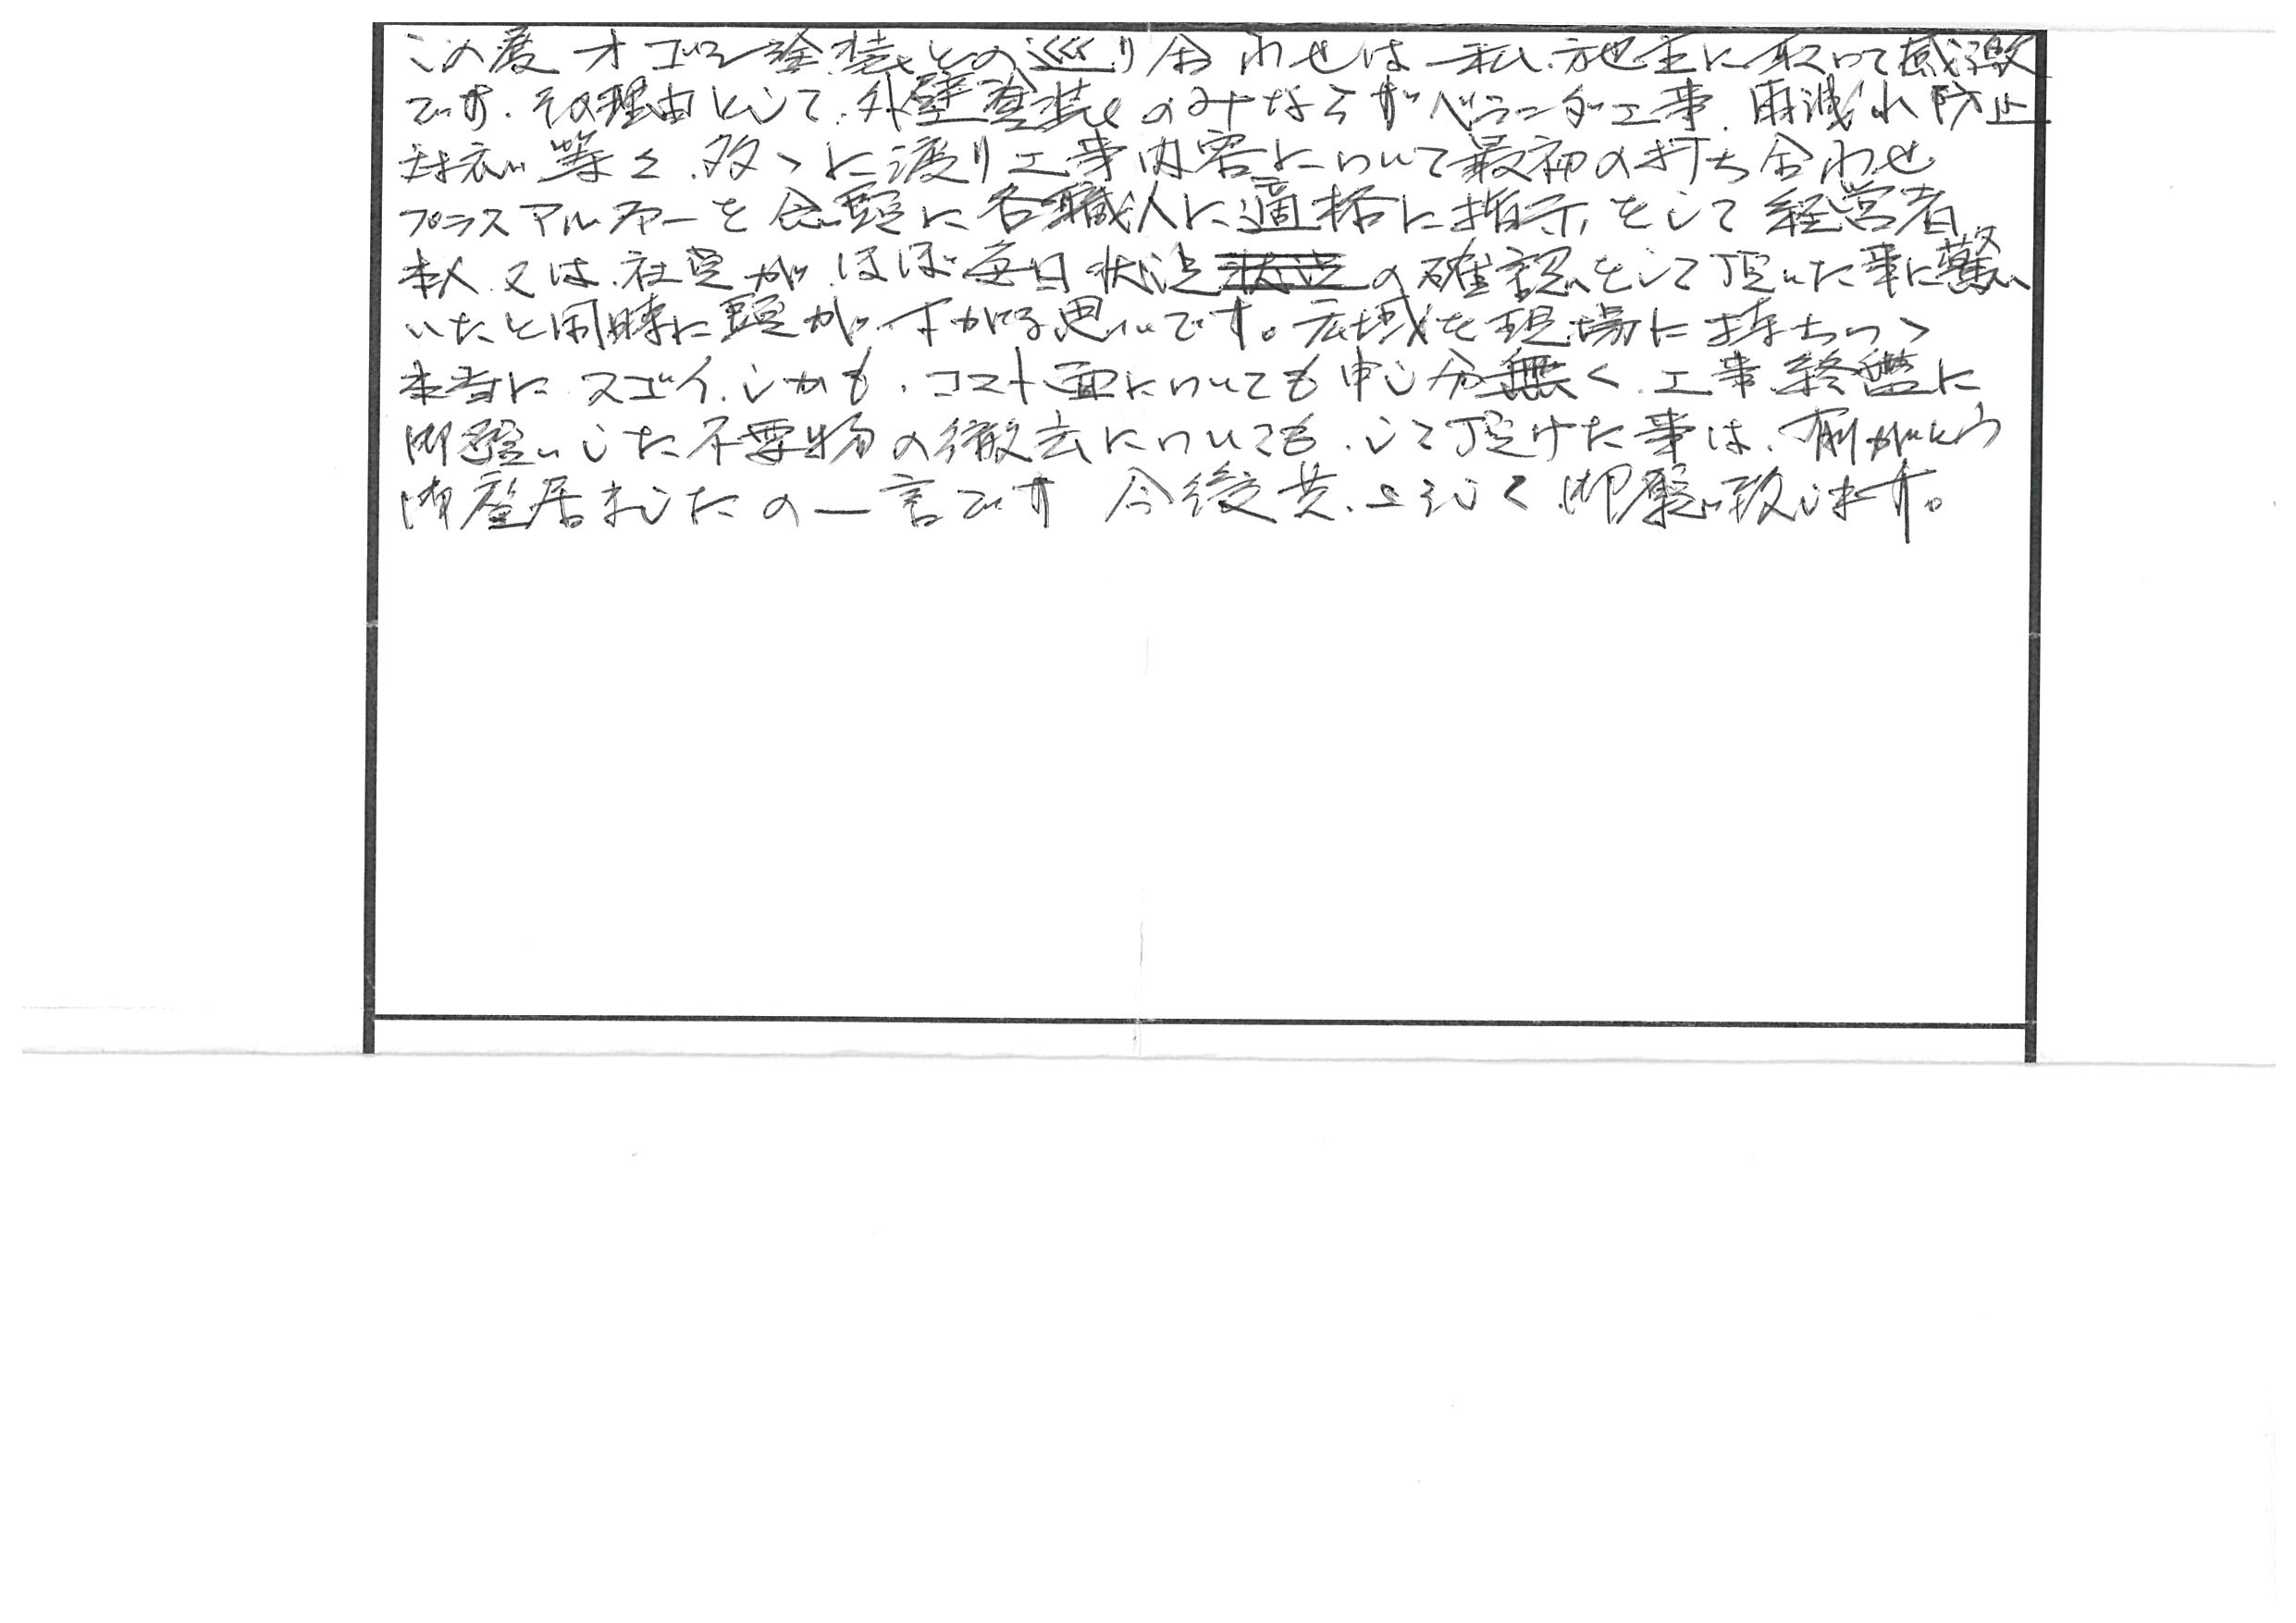 この度オゴシ塗装との巡り合わせは私、施主に取って感激
です。その理由として、外壁塗装のみならずベランダ工事、雨漏れ防止
対衣等々、多々に渡り工事内容について最初の打ち合わせ
プラスアルファーを念頭に各職人に適格に指示をして経営者
本人又は、社員がほぼ毎日状況の確認をして頂いた事に驚
いたと同時に頭が下がる思いです。広域を現場に持ちつゝ
本当にスゴイ、しかも、コスト面についても申し分無く、工事終盤に
御願いした不要物の撤去についても、して頂けた事は、有がとう
御座居ましたの一言です 今後共、よろしく御願い致します。